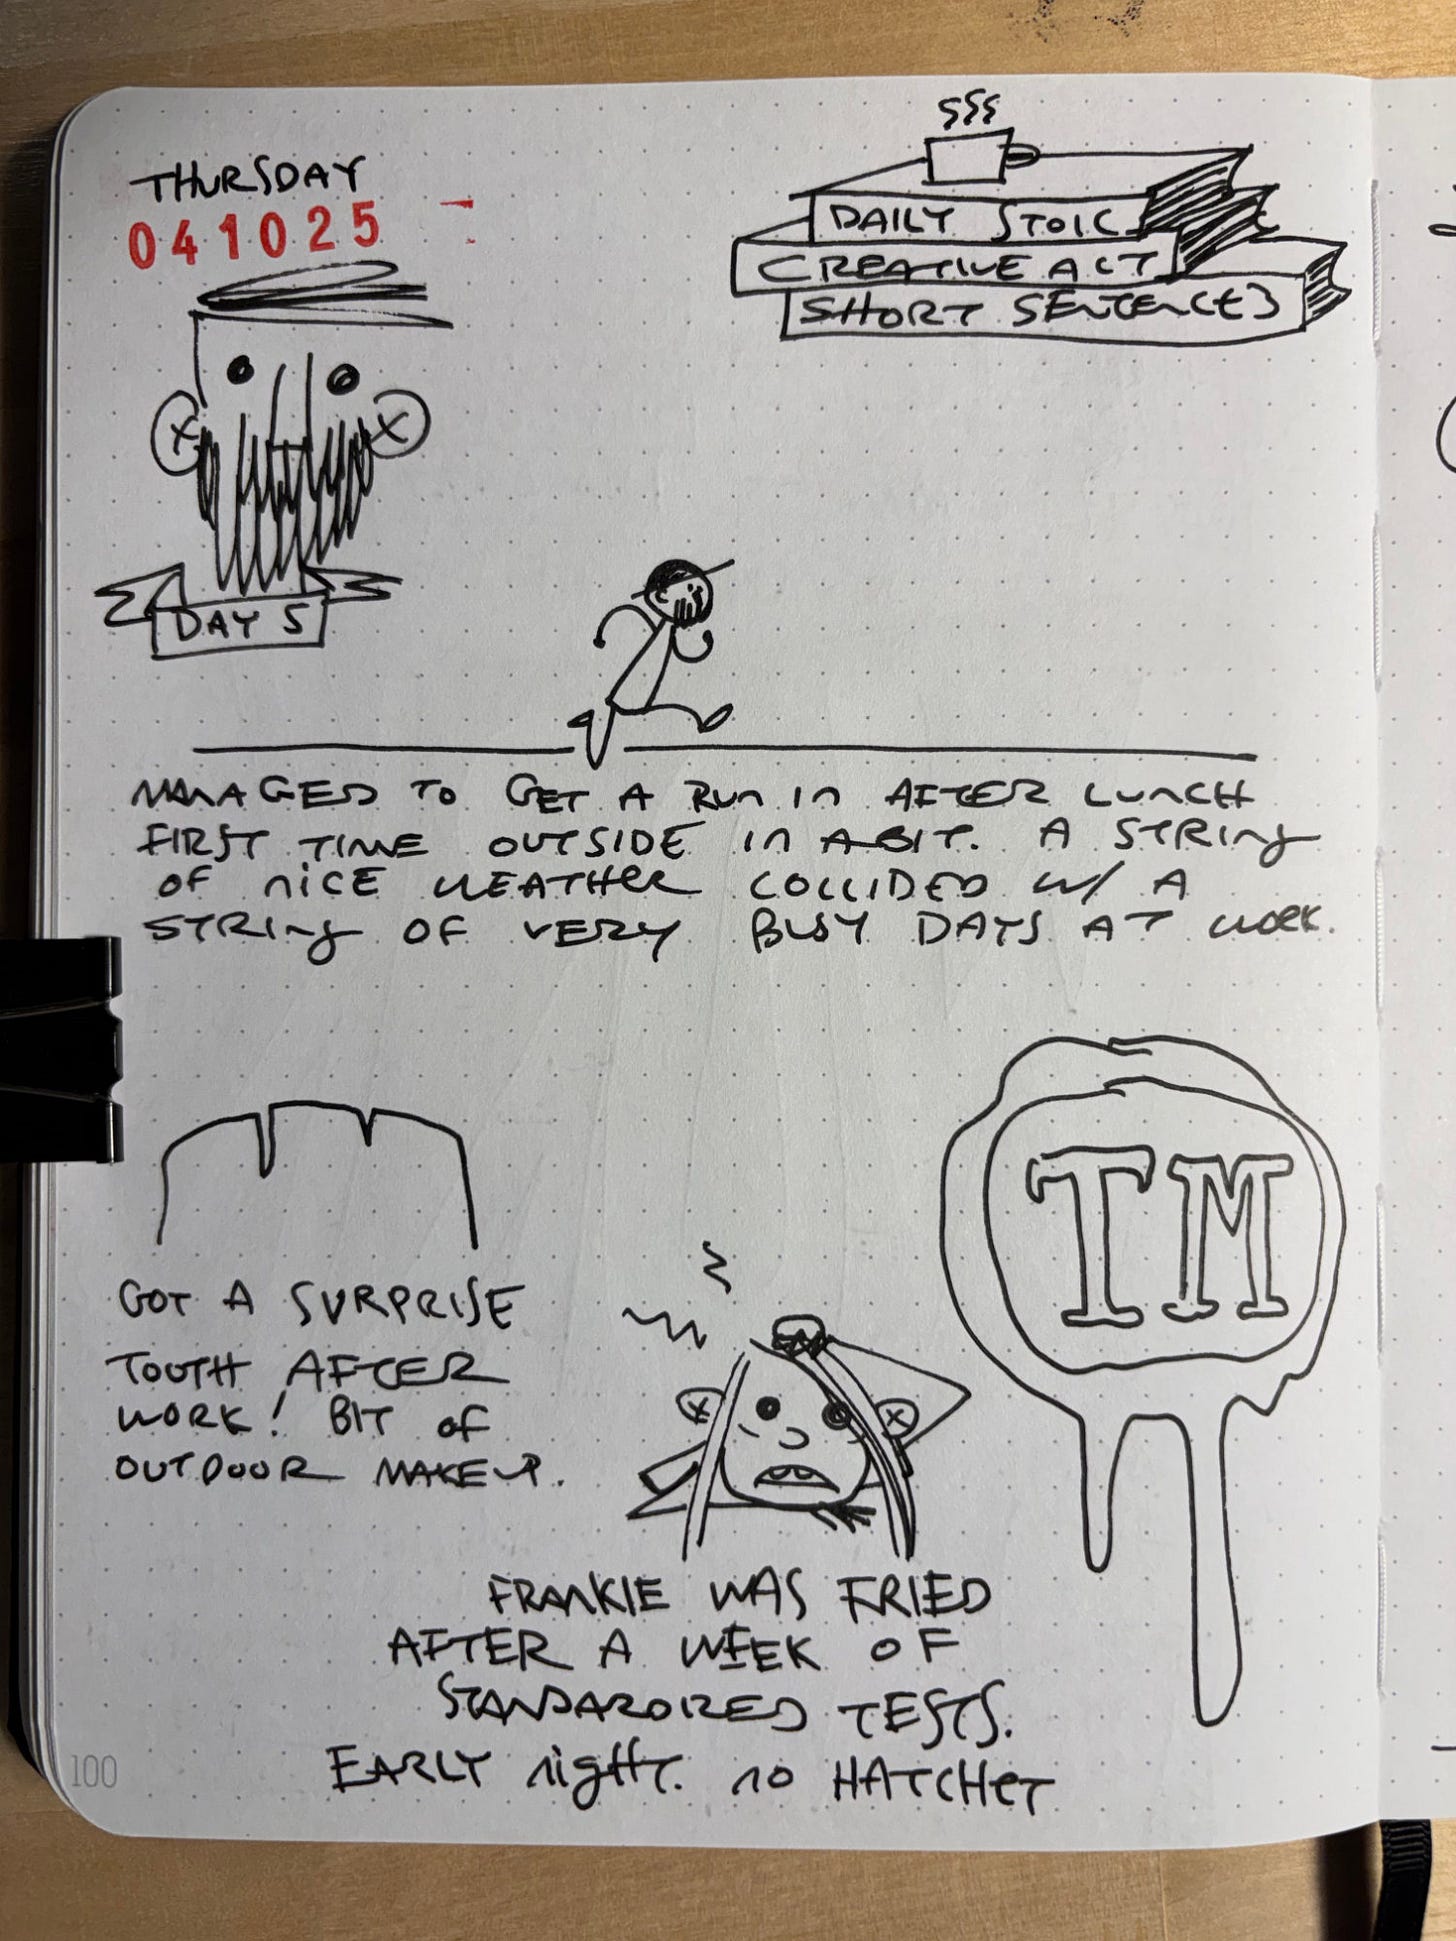 THURSDAY
041025
DAILY STOIC
CREATIVE ACT
SHORT SENTENCES
X X
DAY 5
MANAGED TO GET A RUN IN AFTER LUNCH
FIRST TIME OUTSIDE IN A BIT. A STRING
OF NICE WEATHER COLLIDED W/ A
STRING OF VERY BUSY DAYS AT WORK.
TM
GOT A SURPRISE
TOOTH AFTER
WORK! BIT OF
OUTDOOR MAKEUP.
X X
FRANKIE WAS FRIED
AFTER A WEEK OF
STANDARDIZED TESTS.
EARLY NIGHT. NO HATCHET
100